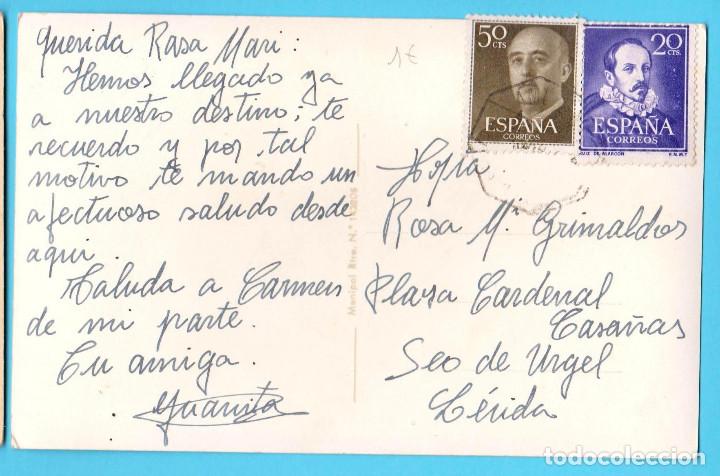 Querida Rosa Mari:
Hemos llegado ya
a nuestro destino; te
recuerdo y por tal
motivo te mando un
afectuoso saludo desde
aqui.
Saluda a Carmen
de mi parte.
Tu amiga.
Juanita
1€
50 CTS
ESPAÑA
CORREOS
20 CTS
ESPAÑA
CORREOS
RUIZ DE ALARCON
F.N.M.T.
Rosa Mª Grimaldos
Plaza Cardenal
Casañas
Seo de Urgel
Lérida
Manipol Rtro. N.º
todocoleccion.net